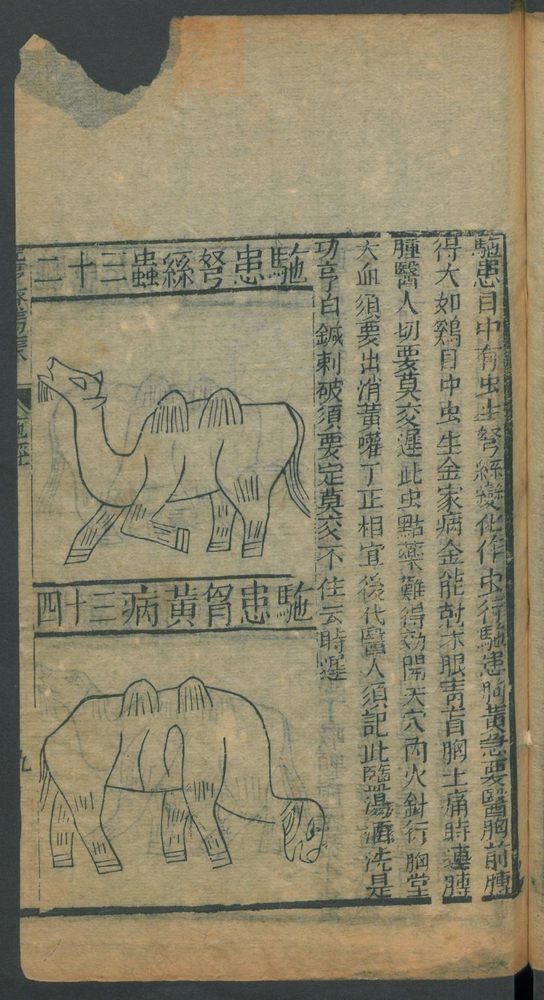 駞患目中有虫生弩絲變化作虫行駞患胸黄急要醫胸前腫
得大如鷄目中虫生金家病金能尅木眼青盲胸上痛時連腫
腫醫人切要莫交遲此虫點藥難得効開天穴内火針行胸堂
大血須要出消黄嚾了正相宜後代醫人須記此鹽湯酒洗是
功亨白鍼刺破須要定莫交不住云時遲
駞患弩絲蟲三十二
駞患胷黄病三十四
駞經
九